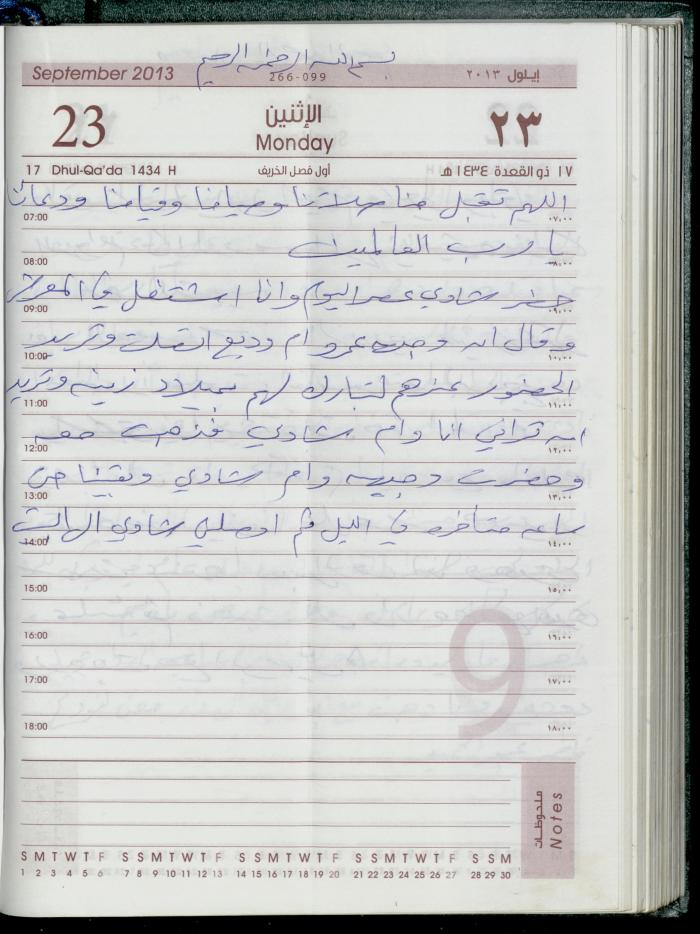 بسم الله الرحمن الرحيم
September 2013
266-099
إيلول ٢٠١٣
23
الإثنين
Monday
٢٣
17 Dhul-Qa'da 1434 H
أول فصل الخريف
١٧ ذو القعدة ١٤٣٤ هـ
اللهم تقبل منا صلاتنا وصيامنا وقيامنا ودعائنا
07:00 ٠٧:٠٠
يا رب العالمين
08:00 ٠٨:٠٠
حضر شادي عصر اليوم وانا اشتغل في
09:00 ٠٩:٠٠
وقال ان وجيه عمرو ام وديع اتصلت وتريد
10:00 ١٠:٠٠
الحضور عندهم لتبارك لهم بميلاد زينه وتريد
11:00 ١١:٠٠
ان تراني انا وام شادي فذهبت معه
12:00 ١٢:٠٠
وحضرت وجيهه وام شادي وبقينا حتى
13:00 ١٣:٠٠
ساعه متأخره في الليل ثم اوصلني شادي الى البيت
14:00 ١٤:٠٠
15:00 ١٥:٠٠
16:00 ١٦:٠٠
17:00 ١٧:٠٠
18:00 ١٨:٠٠
9
ملحوظات
Notes
S M T W T F S S M T W T F S S M T W T F S S M T W T F S S M
1 2 3 4 5 6 7 8 9 10 11 12 13 14 15 16 17 18 19 20 21 22 23 24 25 26 27 28 29 30